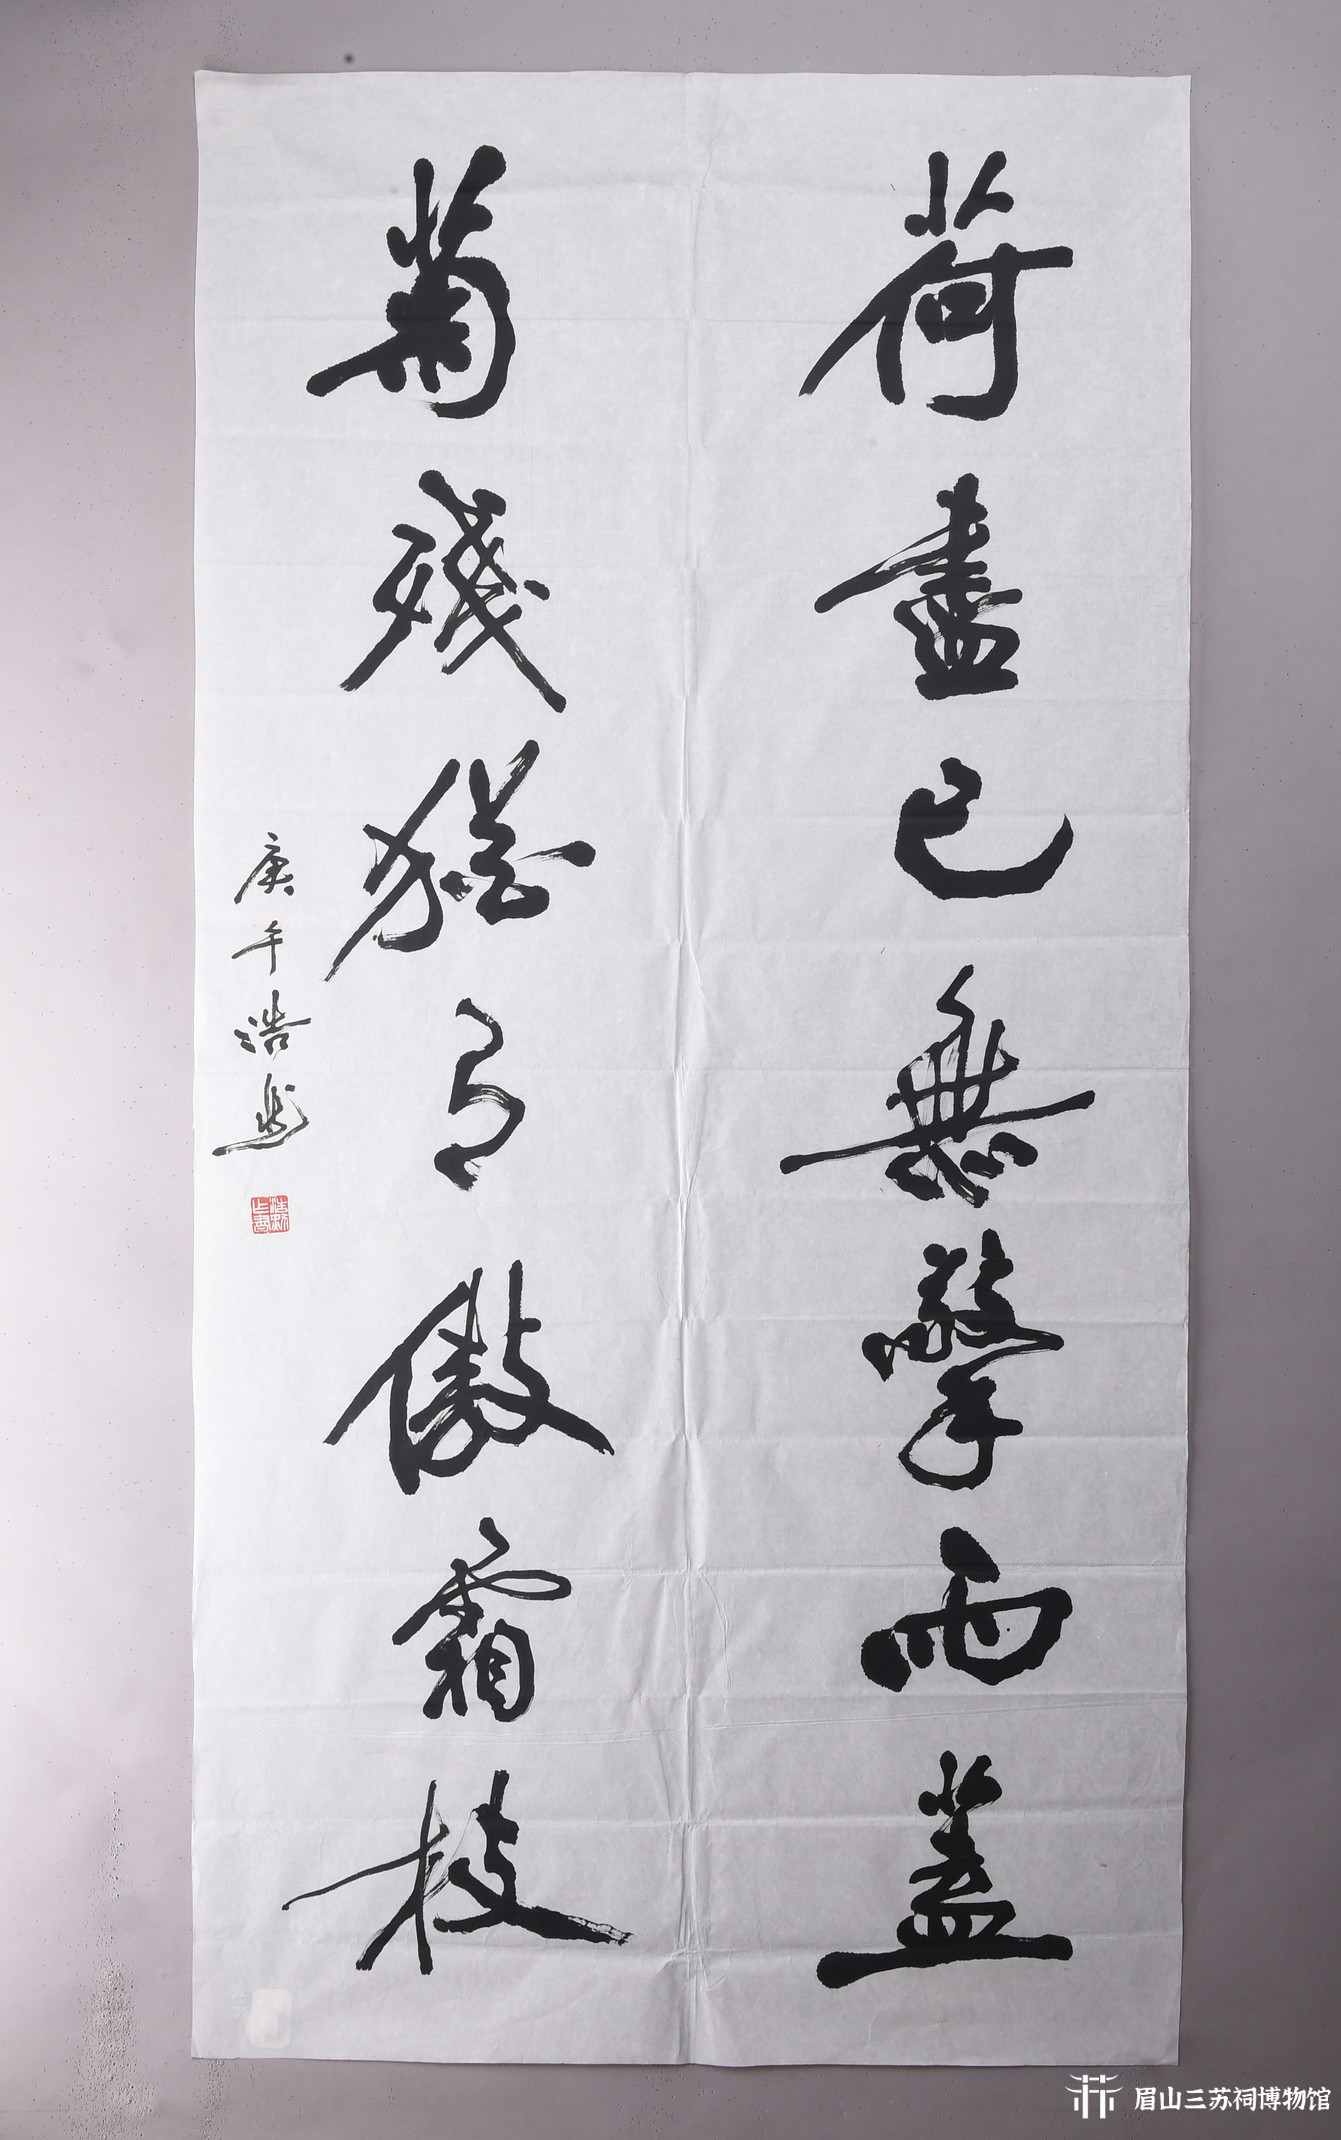 荷盡已無擎雨蓋
菊殘猶有傲霜枝
庚午浩
眉山三苏祠博物馆